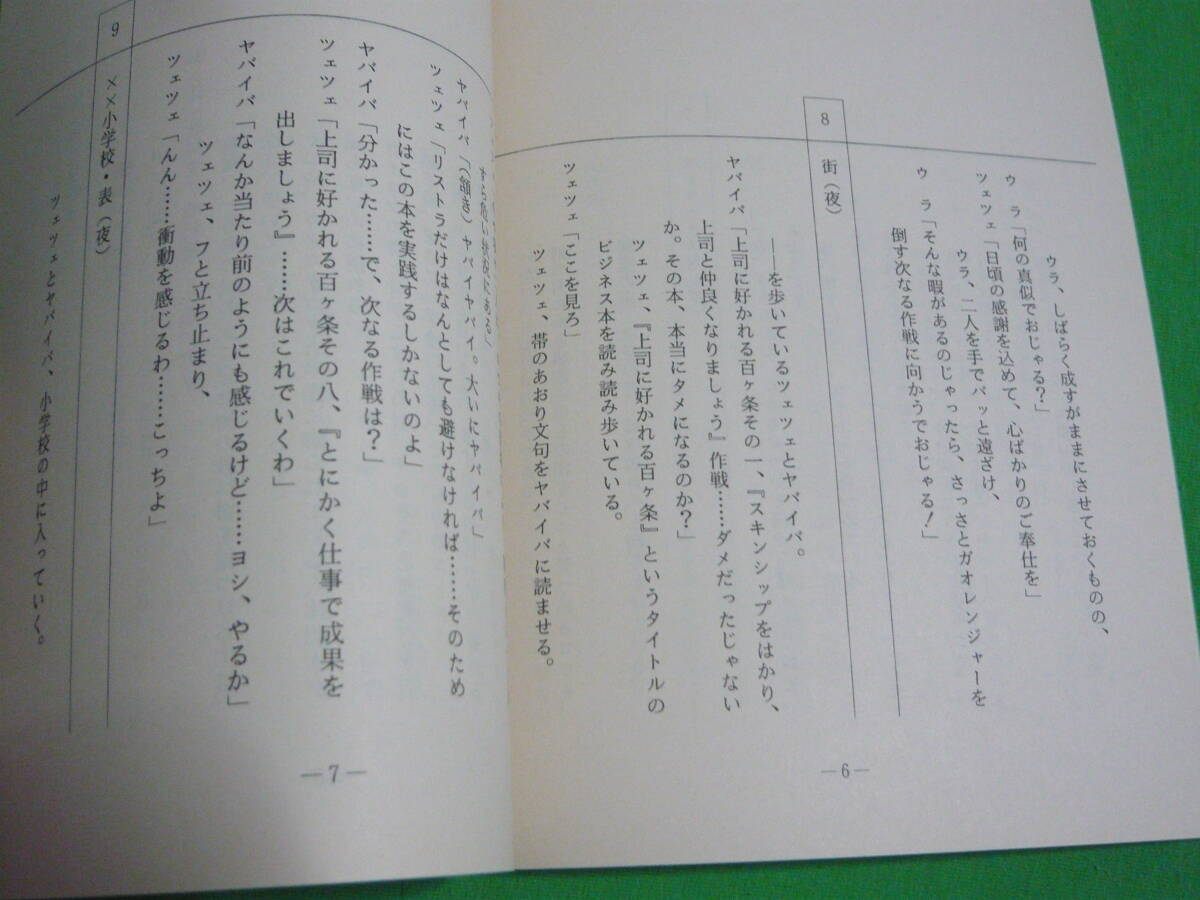 ウラ、しばらく成すがままにさせておくものの、
ウ　ラ「何の真似でおじゃる？」
ツェツェ「日頃の感謝を込めて、心ばかりのご奉仕を」
ウラ、二人を手でバッと遠ざけ、
ウ　ラ「そんな暇があるのじゃったら、さっさとガオレンジャーを
倒す次なる作戦に向かうでおじゃる！」
8　街（夜）
――を歩いているツェツェとヤバイバ。
ヤバイバ「上司に好かれる百ヶ条その一、『スキンシップをはかり、
上司と仲良くなりましょう』作戦……ダメだったじゃない
か。その本、本当にタメになるのか？」
ツェツェ、『上司に好かれる百ヶ条』というタイトルの
ビジネス本を読み読み歩いている。
ツェツェ「ここを見ろ」
ツェツェ、帯のあおり文句をヤバイバに読ませる。
―6―
すら危い状況にある」
ヤバイバ「（頷き）ヤバイヤバイ。大いにヤバイバ」
ツェツェ「リストラだけはなんとしても避けなければ……そのため
にはこの本を実践するしかないのよ」
ヤバイバ「分かった……で、次なる作戦は？」
ツェツェ「上司に好かれる百ヶ条その八、『とにかく仕事で成果を
出しましょう』……次はこれでいくわ」
ヤバイバ「なんか当たり前のようにも感じるけど……ヨシ、やるか」
ツェツェ、フと立ち止まり、
ツェツェ「んん……衝動を感じるわ……こっちよ」
9　××小学校・表（夜）
ツェツェとヤバイバ、小学校の中に入っていく。
―7―